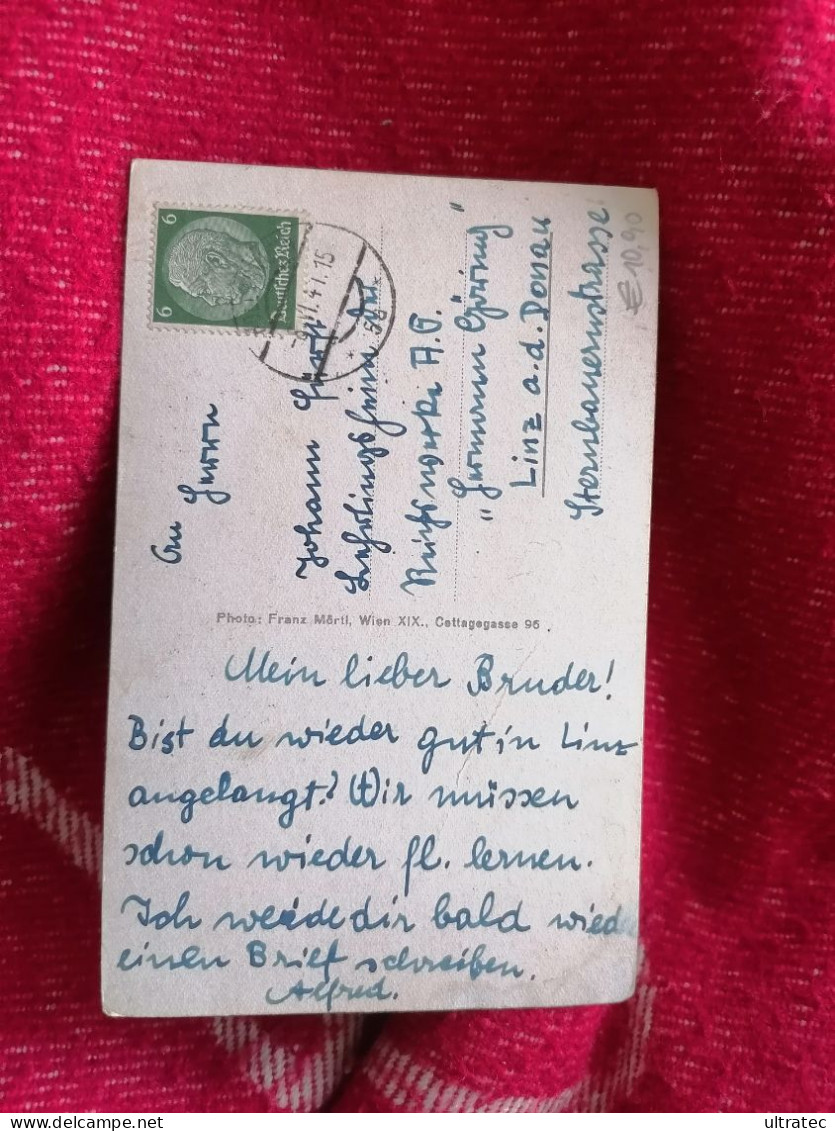 Mein lieber Bruder!
Bist du wieder gut in Linz
angelangt? Wir müssen
schon wieder fl. lernen.
Ich werde dir bald wieder
einen Brief schreiben.
Alfred.
Photo: Franz Märtl, Wien XIX., Cottagegasse 96
6 6
Deutsches Reich
41.15
An Herrn
Johann
Lehrlingsheim der
Reichswerke A.G.
"Hermann Göring"
Linz a.d. Donau
Sternbauernstrasse
€ 10,90
ultratec